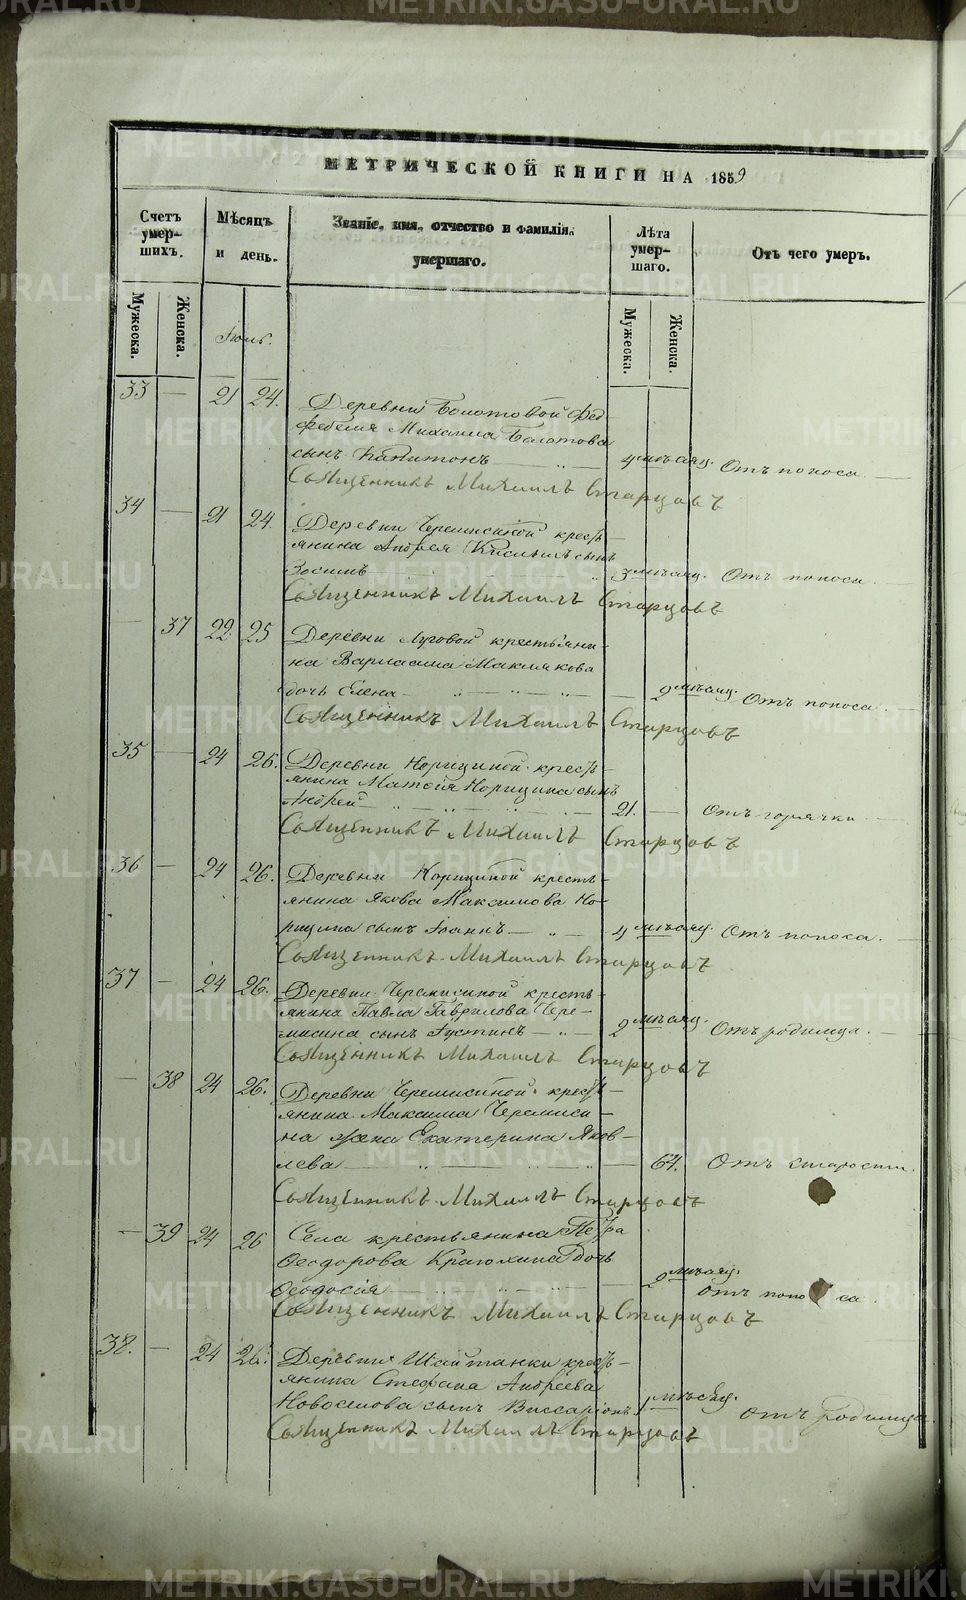 МЕТРИЧЕСКОЙ КНИГИ НА 1859
Счетъ умер-шихъ.
Мѣсяцъ и день.
Званіе, имя, отчество и фамилія умершаго.
Лѣта умер-шаго.
Отъ чего умеръ.
Мужеска. Женска. Мужеска. Женска.
Іюль.
33 — 21 24. Деревни Болотовой фед-
фебеля Михаила Болотова
сынъ Капитонъ — 4 мѣсяц. Отъ поноса
Священникъ Михаилъ Старцовъ
34 — 21 24. Деревни Черемисиной кресть-
янина Андрея сынъ
Зосимъ 3 мѣсяц. Отъ поноса
Священникъ Михаилъ Старцовъ
— 37 22 25 Деревни Луговой крестьяни-
на Варлаама Маклакова
дочь Елена — 2 мѣсяц. Отъ поноса
Священникъ Михаилъ Старцовъ
35 — 24 26. Деревни Норициной кресть-
янина Матѳея Норицина сынъ
Андрей 21. — Отъ горячки
Священникъ Михаилъ Старцовъ
36 — 24 26. Деревни Норициной кресть-
янина Якова Максимова Но-
рицина сынъ Іоаннъ — 4 мѣсяц. Отъ поноса.
Священникъ Михаилъ Старцовъ
37 — 24 26. Деревни Черемисиной кресть-
янина Павла Гаврилова Чере-
мисина сынъ Іустинъ — 2 мѣсяц. Отъ родимца.
Священникъ Михаилъ Старцовъ
— 38 24 26. Деревни Черемисиной кресть-
янина Максима Черемиси-
на жена Екатерина Яков-
лева — 64. Отъ старости.
Священникъ Михаилъ Старцовъ
— 39 24 26 Села крестьянина Петра
Ѳеодорова Краюхина дочь
Ѳеодосія — 2 мѣсяц. отъ поноса.
Священникъ Михаилъ Старцовъ
38. — 24 26. Деревни Шайтанки кресть-
янина Стефана Андреева
Новоселова сынъ Виссаріонъ 1 мѣсяц. отъ родимца.
Священникъ Михаилъ Старцовъ
METRIKI.GASO-URAL.RU